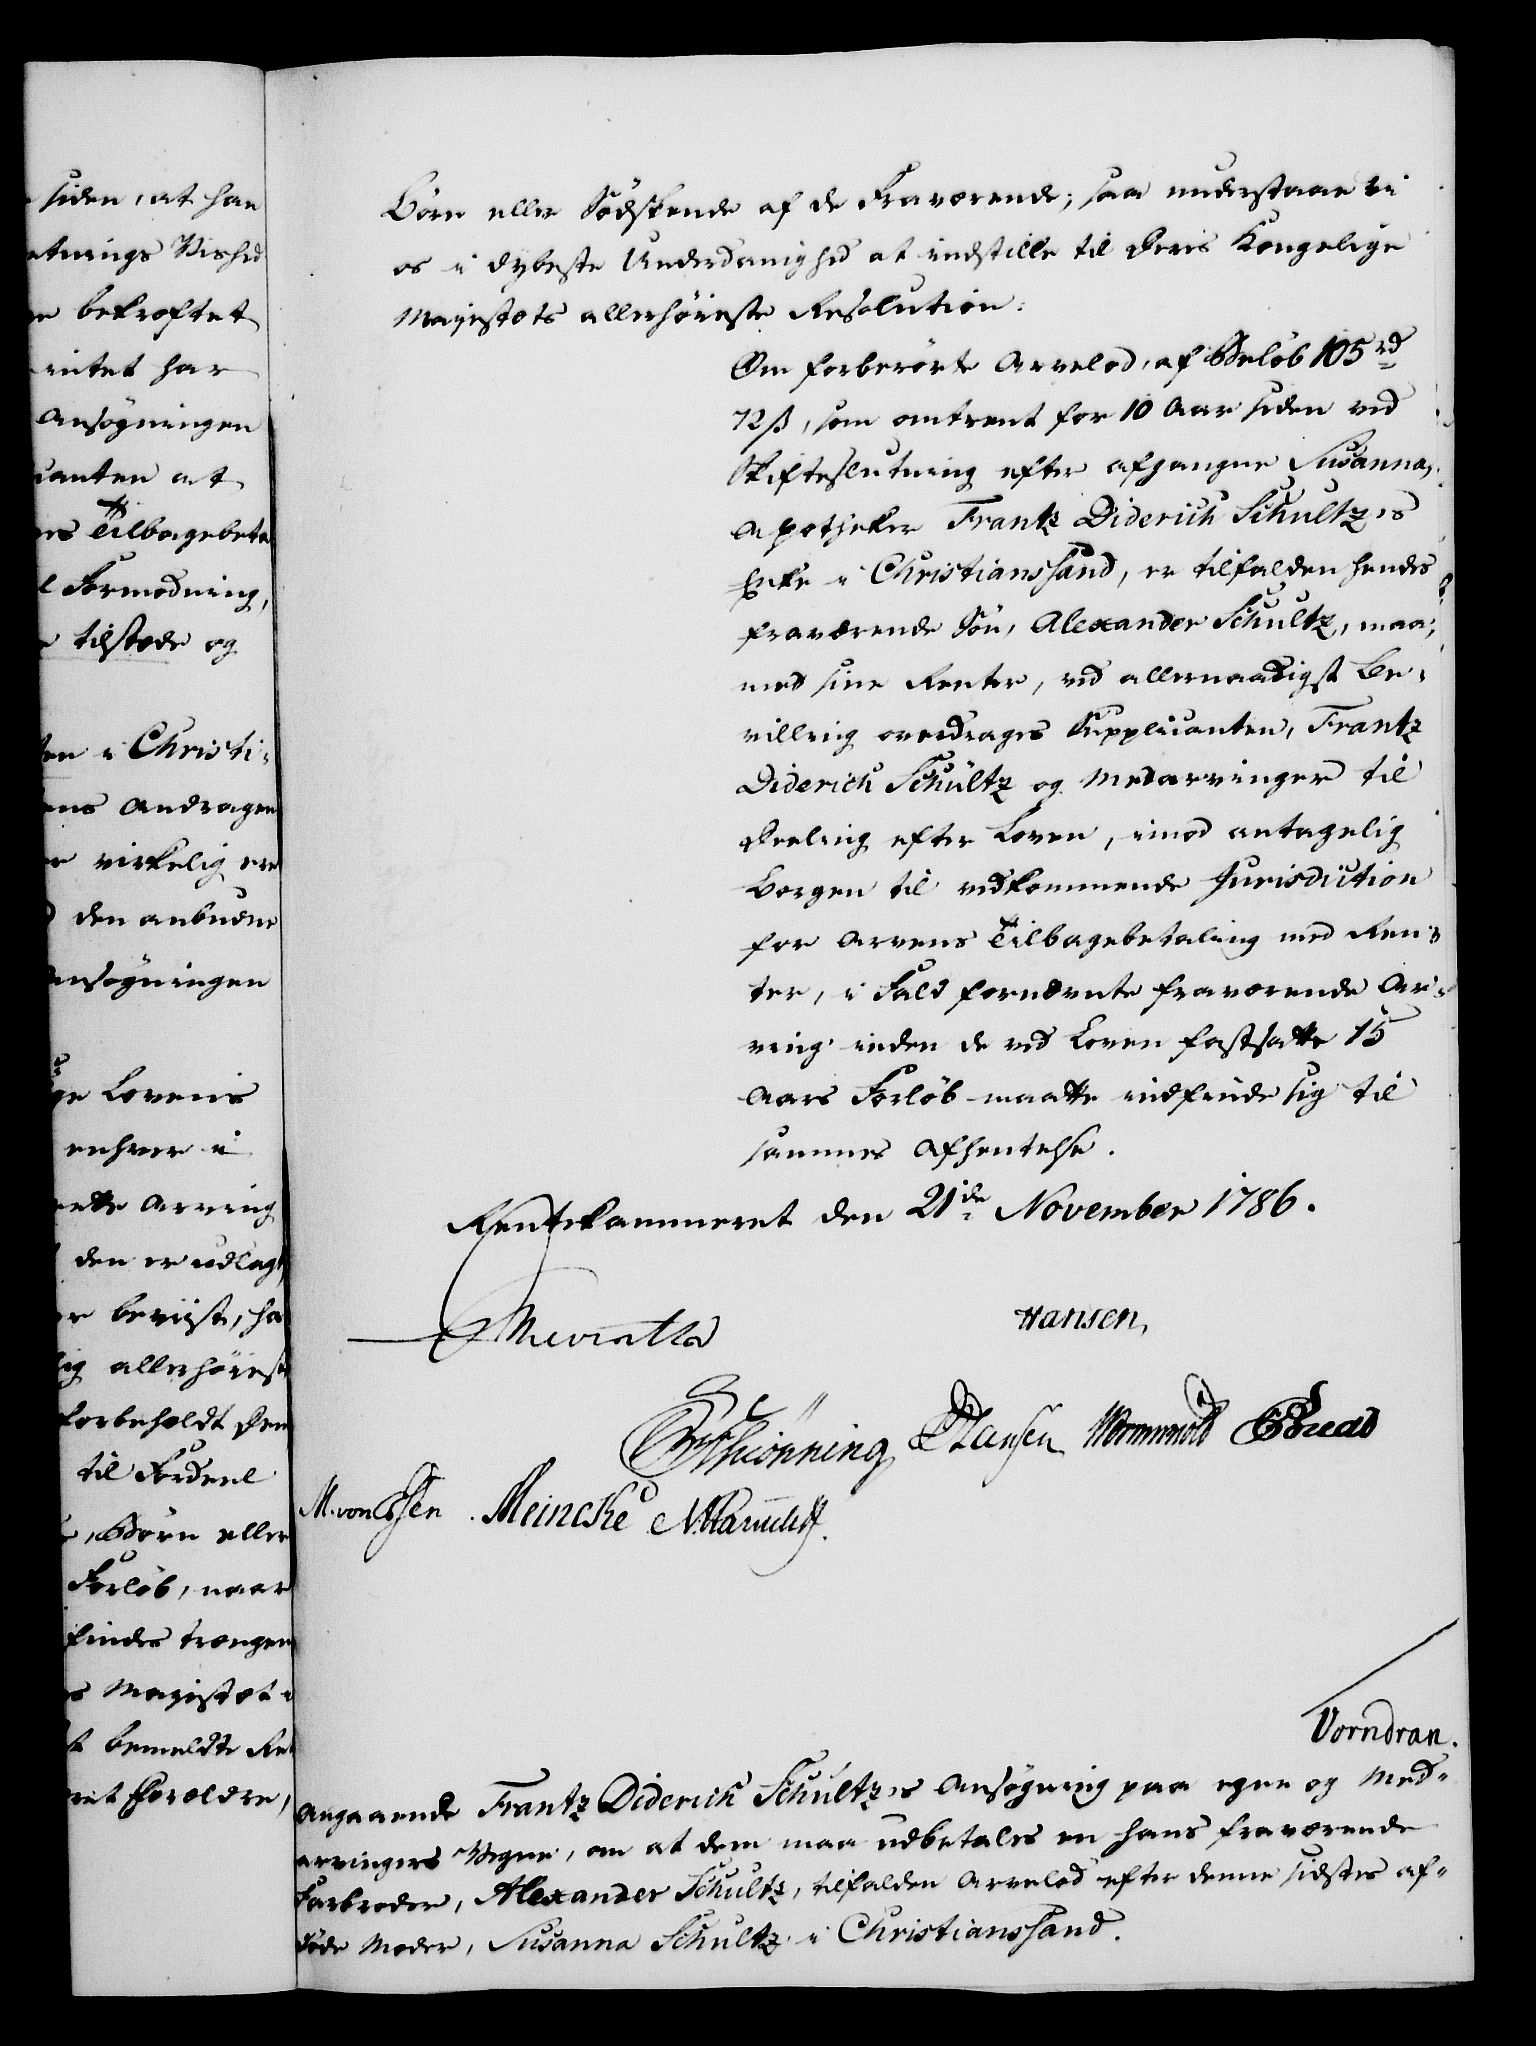 siden, at han
etnings Vished
re bekræftet
intet har
Ansøgningen
canten at
ns Tilbagebeta
l Formodning,
e tilstæde og
ten i Christi-
ens Andragen
er virkelig ere
d den anbudne
Ansøgningen
ge Lovens
enhver i
rette Arving
den er udlagt
er beviist, ha
lig allerhøiest
forbeholdt Dem
til Fordeel
, Børn eller
Forløb, naar
findes trængen
s Majestæt i
t bemeldte Re
ret Forældre,
Børn eller Sødskende af de Fraværende; saa understaae vi
os i dybeste Underdanighed at indstille til Deris Kongelige
Majestæts allerhøieste Resolution:
Om forberørte Arvelod, af Beløb 105 rd
72 ß, som omtrent for 10 Aar siden ved
Skifteslutning efter afgangne Susanna,
Apotheker Frantz Diderich Schultzes
Enke i Christianssand, er tilfalden hendes
fraværende Søn, Alexander Schultz, maa,
med sine Renter, ved allernaadigst Be-
villing overdrages Supplicanten, Frantz
Diderich Schultz og Medarvinger til
Deeling efter Loven, imod antagelig
Borgen til vedkommende Jurisdiction
for Arvens Tilbagebetaling med Ren-
ter, i Fald fornævnte fraværende Ar-
ving inden de ved Loven fastsatte 15
Aars Forløb maatte indfinde sig til
sammes Afhentelse.
Rentekammeret den 21de November 1786.
Hansen,
Schiønning Hansen Wormskiold
M. von Essen. Meincke
Vorndran.
Angaaende Frantz Diderich Schultzes Ansøgning paa egne og Med-
arvingers Vegne, om at dem maa udbetales en hans fraværende
Farbroder, Alexander Schultz, tilfalden Arvelod efter denne sidstes af-
døde Moder, Susanna Schultz i Christianssand.